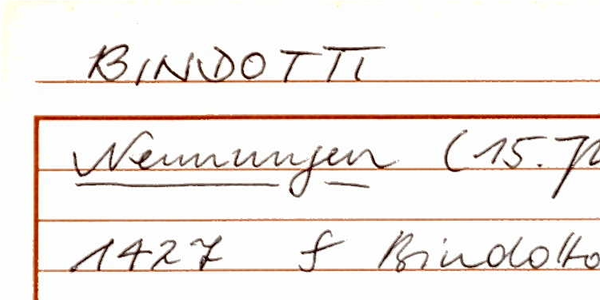 BINDOTTI
Nennungen (15.
1427 f Bindotto